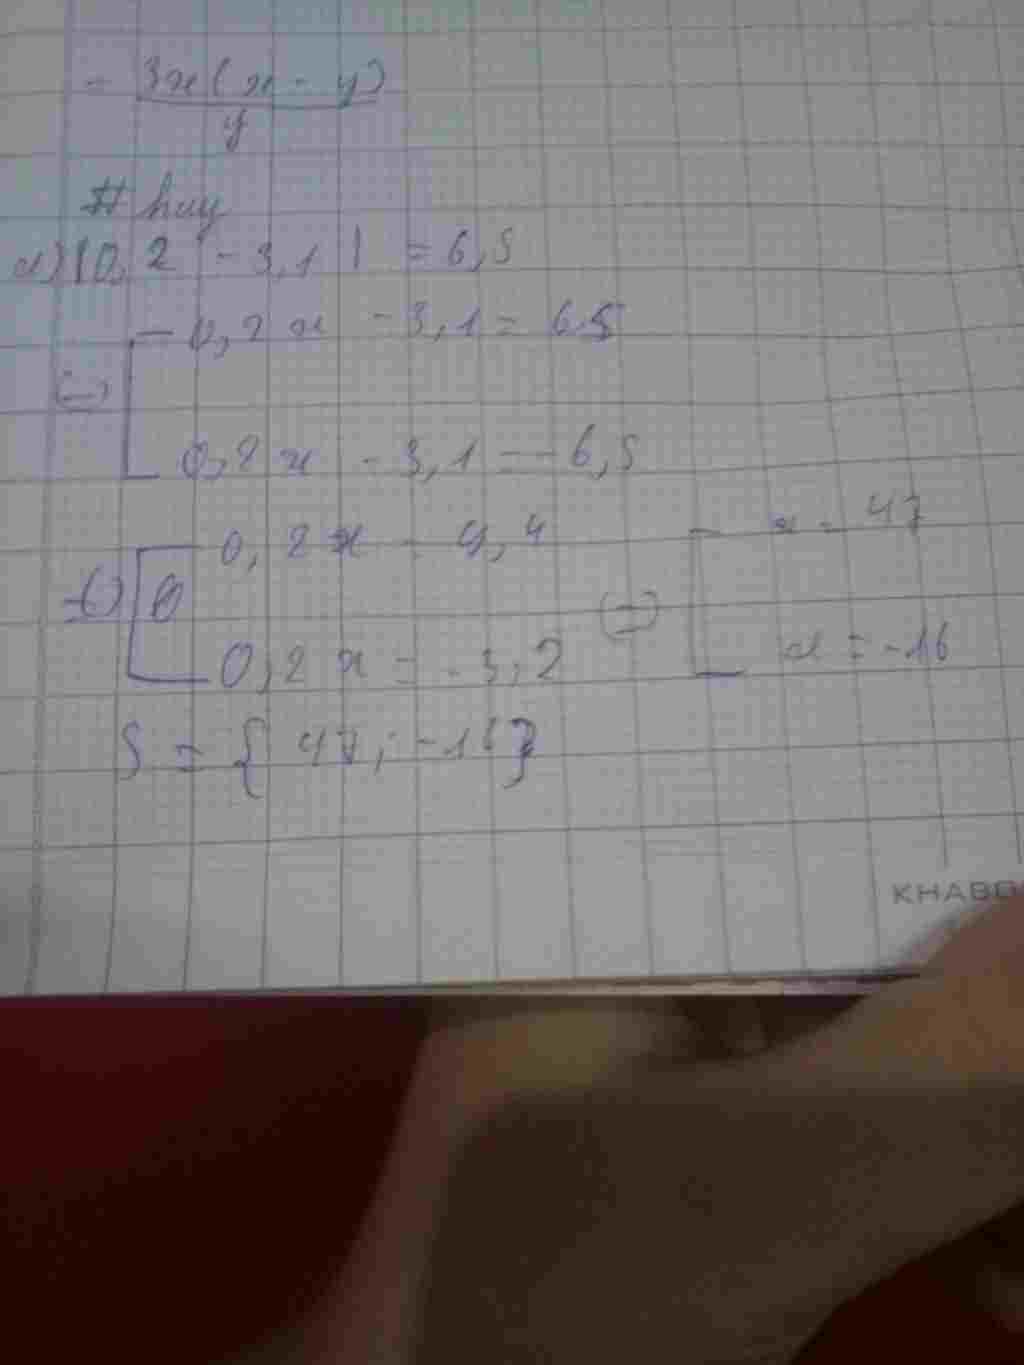 = 3x(x - y)
y
# huy
d) |0,2 - 3,1| = 6,5
0,2x - 3,1 = 6,5
(=)
0,2x - 3,1 = -6,5
0,2x = 9,4
x = 47
(=)
0,2x = -3,2
x = -16
S = { 47; -16}
KHABO